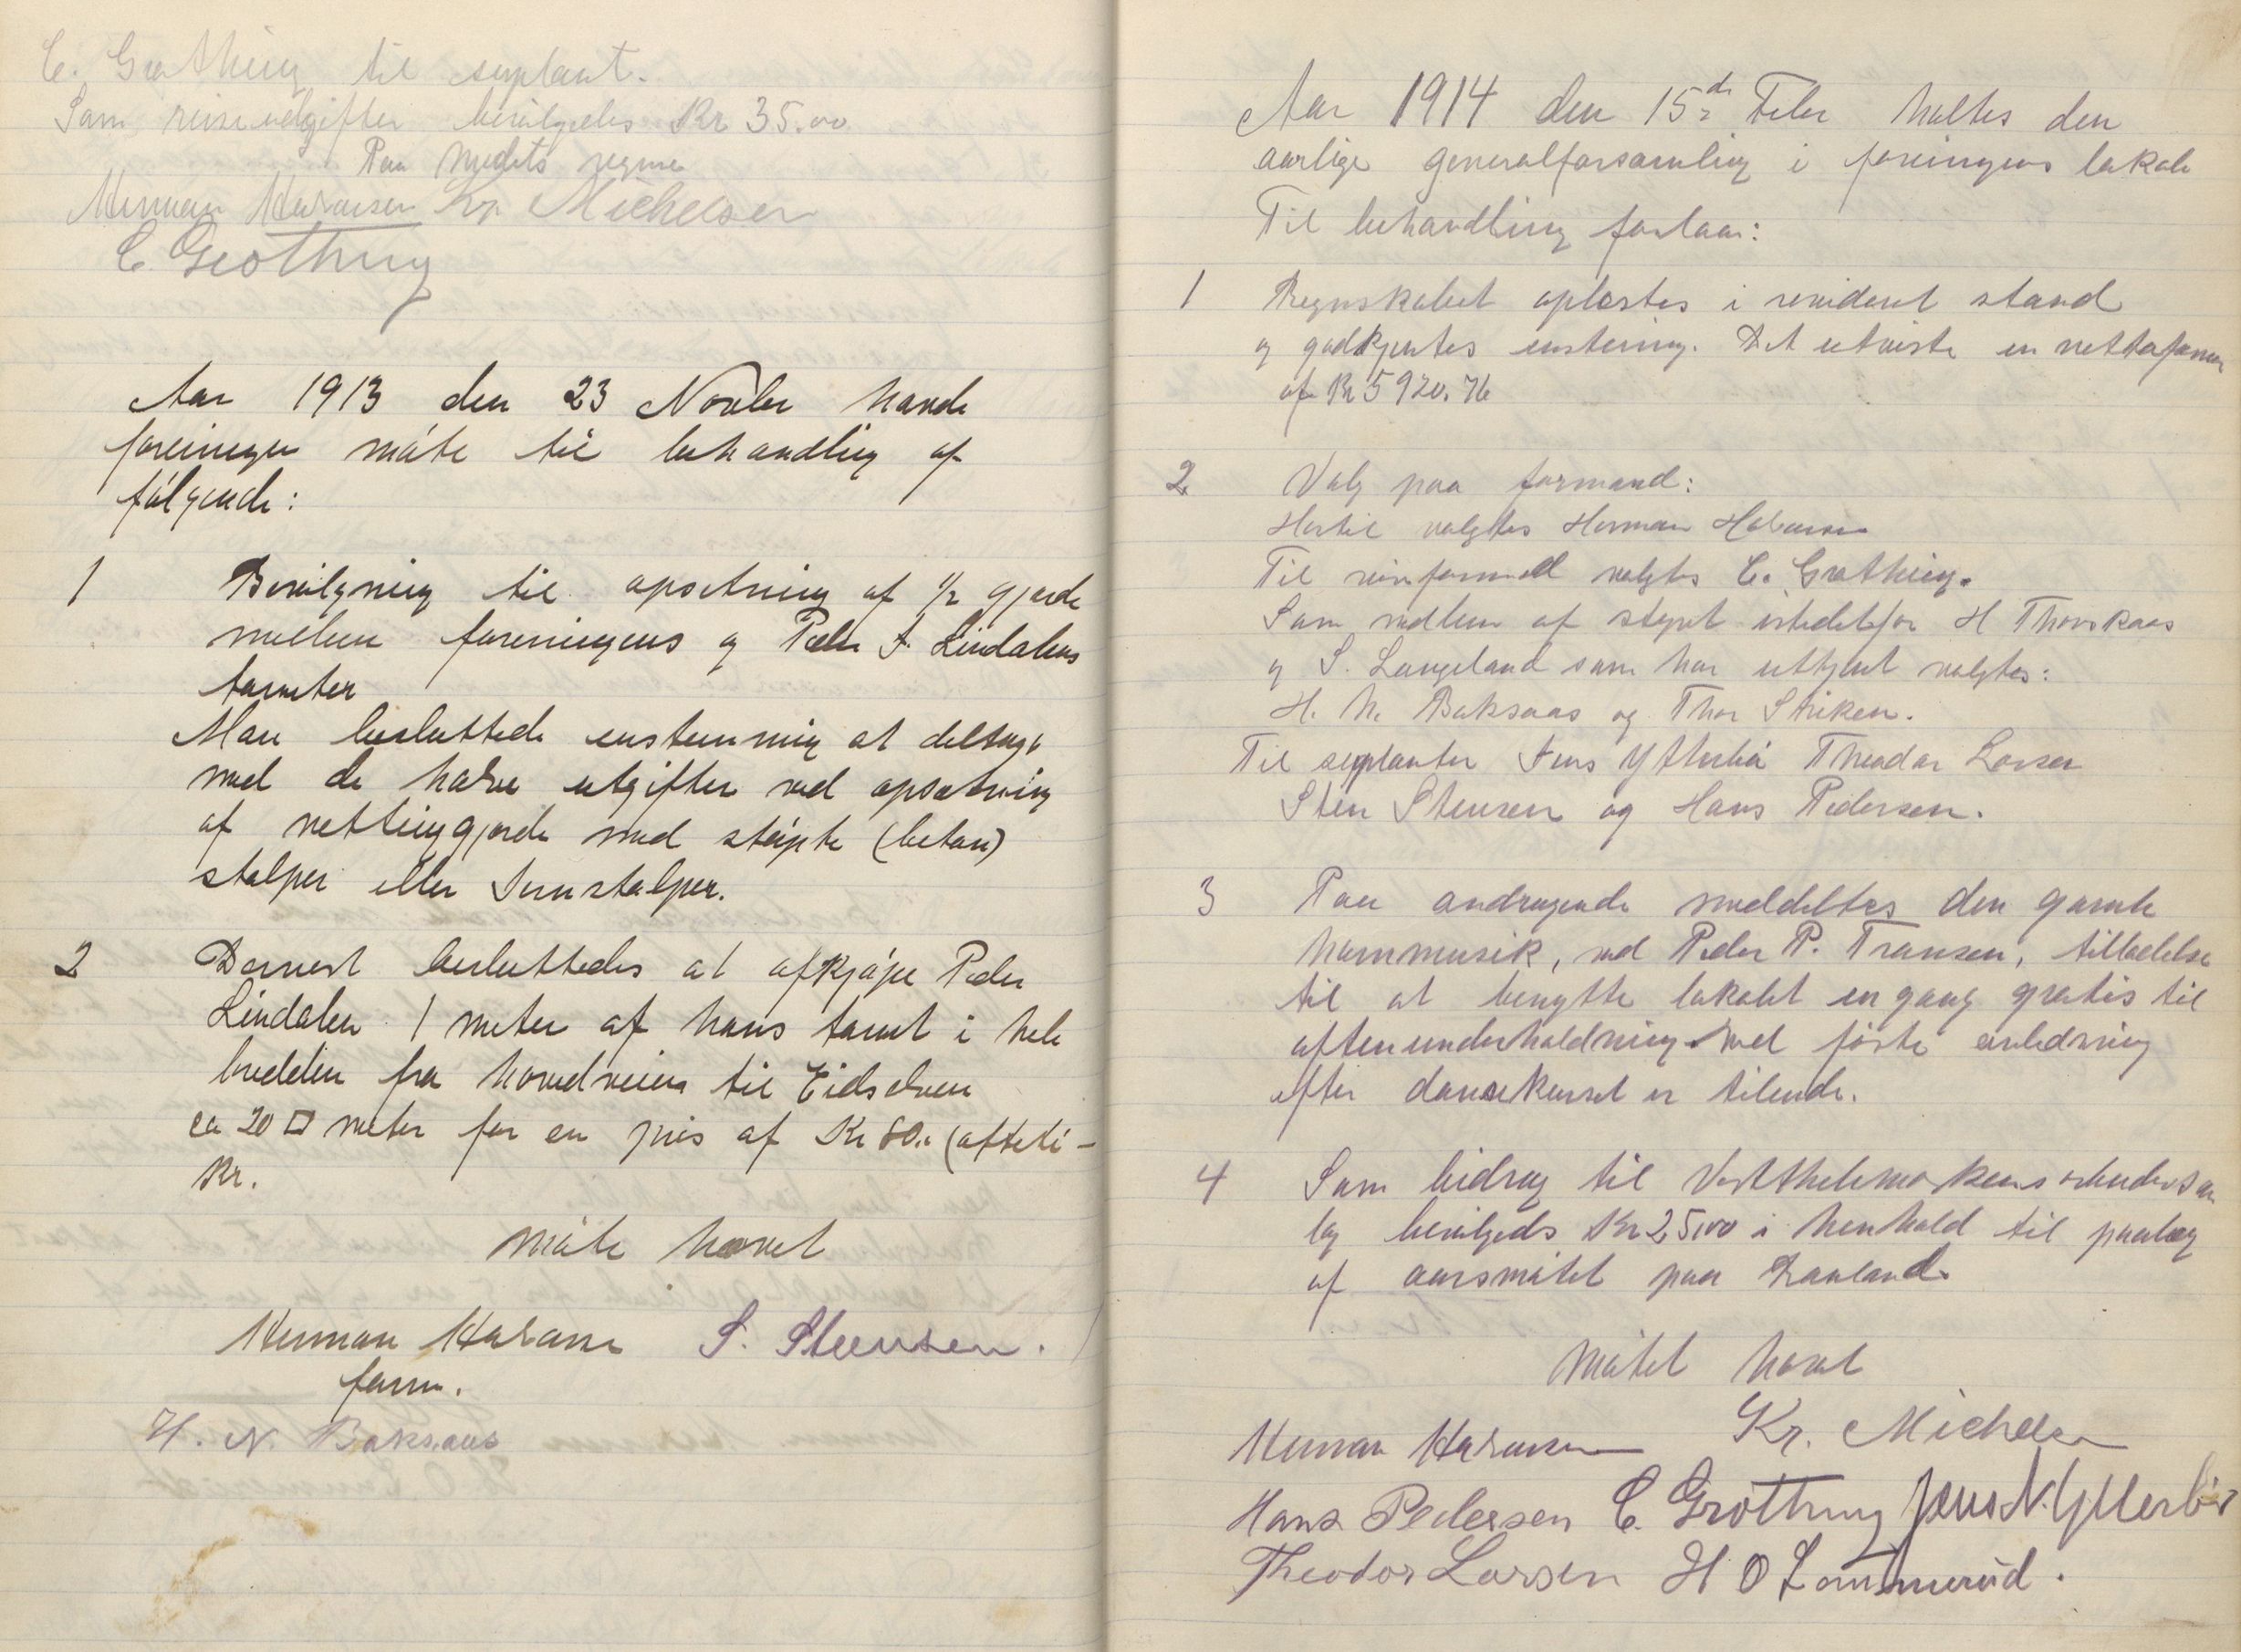 C. Grøthing til suplant.
Som reiseudgifter bevilgedes Kr 35.00
Paa mødets vegne
Herman Halvorsen Kr. Michelsen
C. Grøthing
Aar 1913 den 23 Novbr havde
foreningen møte til behandling af
følgende:
1 Bevilgning til opsetning af 1/2 gjerde
mellem foreningens og Peder J. Lindalens
tomter
Man besluttede enstemmig at deltage
med de halve utgifter ved opsetning
af nettinggjerde med støpte (beton)
stolper eller Jernstolper.
2 Dernest besluttedes at afkjøpe Peder
Lindalen 1 meter af hans tomt i hele
bredden fra hovedveien til Eidselven
ca 20 □ meter for en pris af Kr 80.- (aotteti-
Kr.
Møte hævet
Herman Halvorsen S. Steensen.
form.
H. N. Boksaas
Aar 1914 den 15de Febr holtes den
aarlige generalforsamling i foreningens lokale
Til behandling forelaa:
1 Regnskabet oplæstes i revideret stand
og godkjentes enstemig. Det utviste en nettoformue
af Kr 5920.76
2 Valg paa formand:
Hertil valgtes Herman Halvorsen
Til viseformand valgtes C. Grøthing.
Som medlem af styret istedetfor H Thorskaas
og S. Langeland som har uttjent valgtes:
H. N. Boksaas og Thor Striken.
Til suplanter Jens Ytterbø Theodor Larsen
Sten Stensen og Hans Pedersen.
3 Paa andragende meddeltes den gamle
hornmusik, ved Peder P. Transen, tilladelse
til at benytte lokalet en gang gratis til
aftenunderholdning med første anledning
efter dansekurset er tilende.
4 Som bidrag til Vestthelemarkens arbeidersam
lag bevilgeds Kr 25.00 i henhold til paalæg
af aarsmøtet paa Dalland.
Møtet hævet
Herman Halvorsen Kr. Michelsen
Hans Pedersen C. Grøthing Jens N. Ytterbø
Theodor Larsen H O Lommerud.